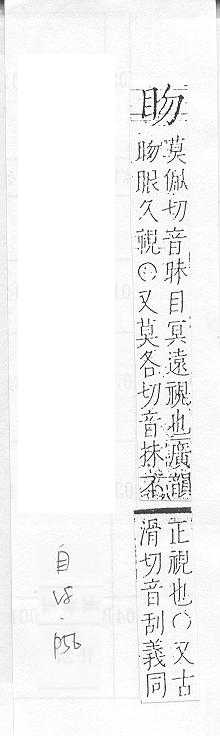 䀛
莫佩切音昧目冥遠視也廣韻
䀛眼久視〇又莫各切音抹不
正視也〇又古
滑切音刮義同
自
V8
·
P56